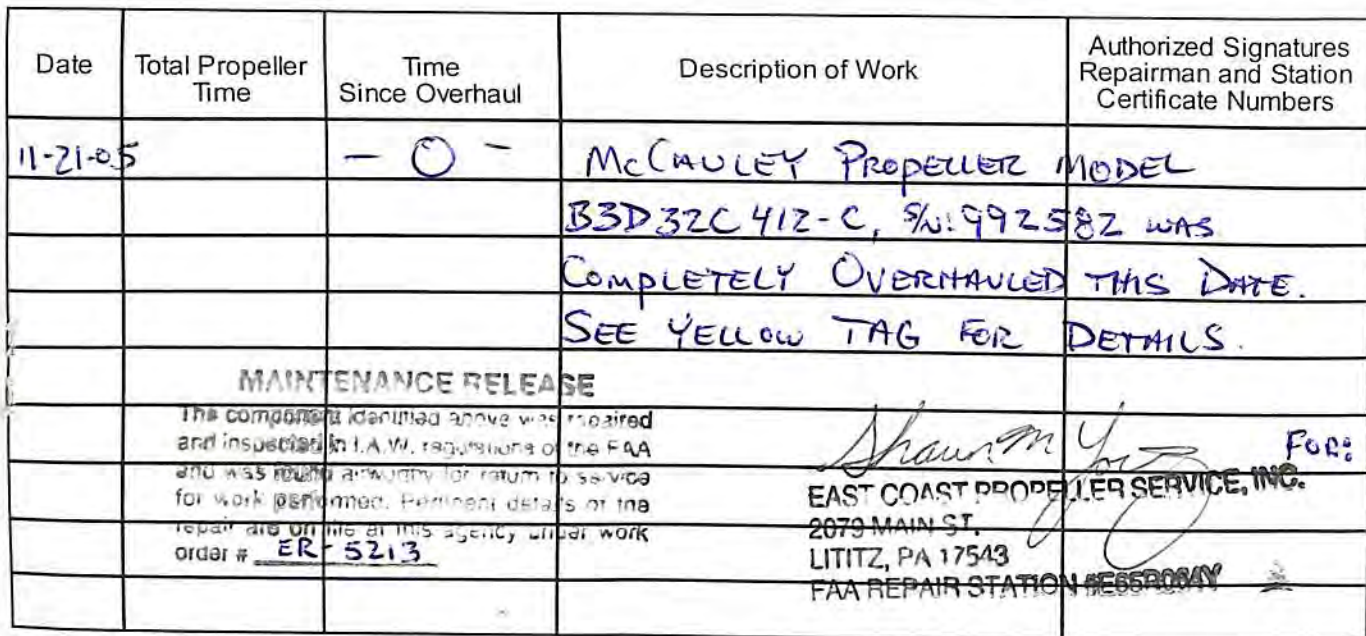 Date Total Propeller Time Time Since Overhaul Description of Work Authorized Signatures Repairman and Station Certificate Numbers
11-21-05 - 0 - McCAULEY PROPELLER MODEL
B3D32C412-C, S/N: 992582 WAS
COMPLETELY OVERHAULED THIS DATE.
SEE YELLOW TAG FOR DETAILS.
MAINTENANCE RELEASE
The component identified above was repaired
and inspected in I.A.W. regulations of the FAA
and was found airworthy for return to service
for work performed. Pertinent details of the
repair are on file at this agency under work
order # ER-5213
Shaun M FOR:
EAST COAST PROPELLER SERVICE, INC.
2079 MAIN ST.
LITITZ, PA 17543
FAA REPAIR STATION